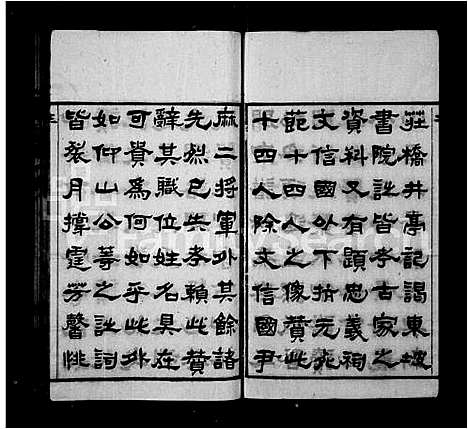 莊橋井亭記謁東坡
書院註皆考古家之
資料又有題忠義祠
文信國外下揹元兆
範十四人之像贊此
十四人除文信國尹
麻二將軍外其餘諸
先烈已失考賴此贊
辭其職位姓名具在
可貴為何如乎此外
如仰山公等之註詞
皆裁月撐霆芳馨悱